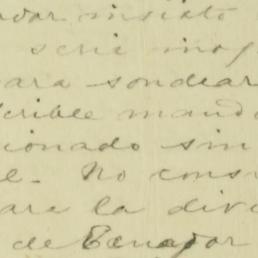 insisto
seria
para sondear
mando
ionado sin
e. No cons
are la div
de Ecuador